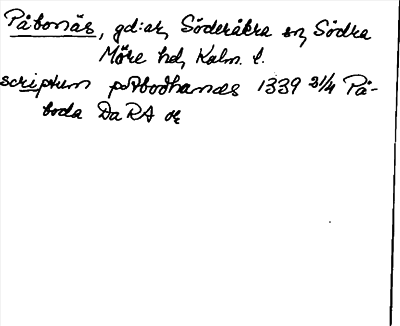 Påbonäs, gd:ar, Söderåkra sn, Södra
Möre hd, Kalm. l.
scriptum potbodhanæs 1339 31/4 På-
boda DaRA or